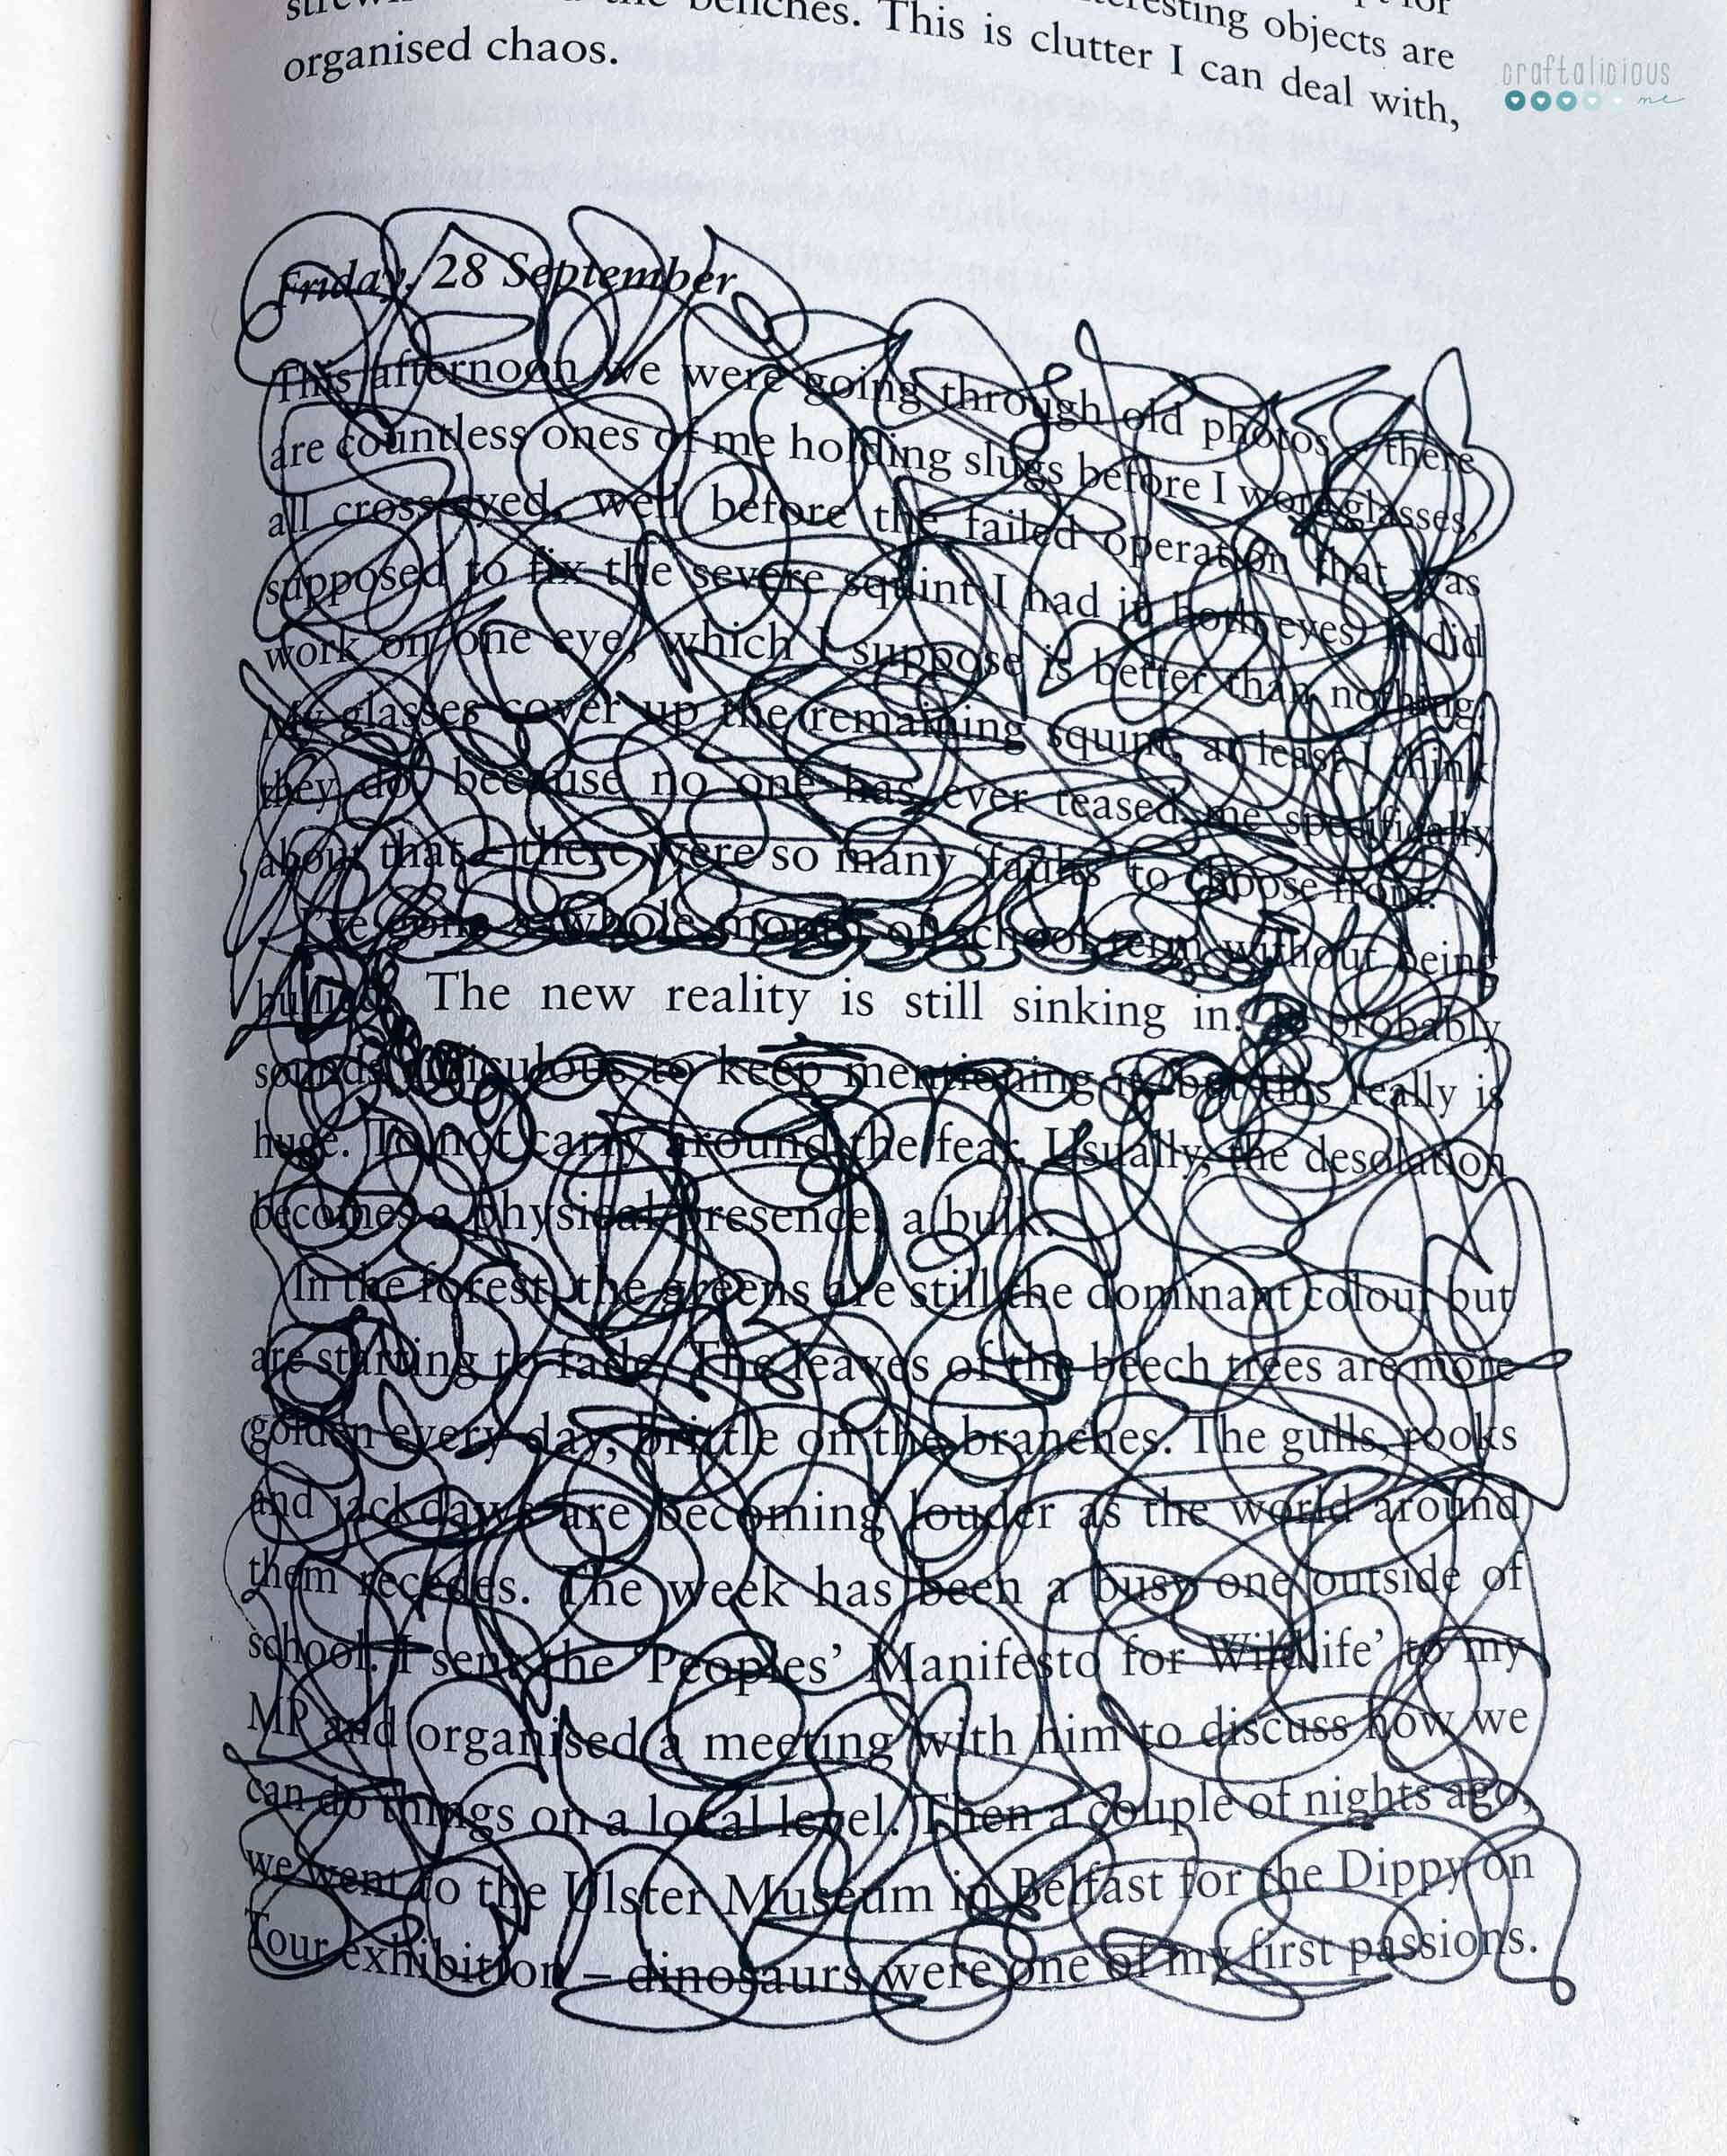 benches. This is clutter I can deal with,
objects are
organised chaos.
craftalicious
me
Friday, 28 September
This afternoon we were going through old photos – there
are countless ones of me holding slugs before I wore glasses,
all cross-eyed, well before the failed operation that was
supposed to fix the severe squint I had in both eyes. It did
work on one eye, which I suppose is better than nothing.
My glasses cover up the remaining squint, at least I think
they do, because no one has ever teased me specifically
about that – there were so many 'faults' to choose from.
I've gone a whole month of school term without being
bullied. The new reality is still sinking in. It probably
sounds ridiculous to keep mentioning it, but this really is
huge. To not carry around the fear. Usually, the desolation
becomes a physical presence, a bulk.
In the forest, the greens are still the dominant colour but
are starting to fade. The leaves of the beech trees are more
golden every day, brittle on the branches. The gulls, rooks
and jackdaws are becoming louder as the world around
them recedes. The week has been a busy one outside of
school. I sent the 'Peoples' Manifesto for Wildlife' to my
MP and organised a meeting with him to discuss how we
can do things on a local level. Then a couple of nights ago,
we went to the Ulster Museum in Belfast for the Dippy on
Tour exhibition – dinosaurs were one of my first passions.